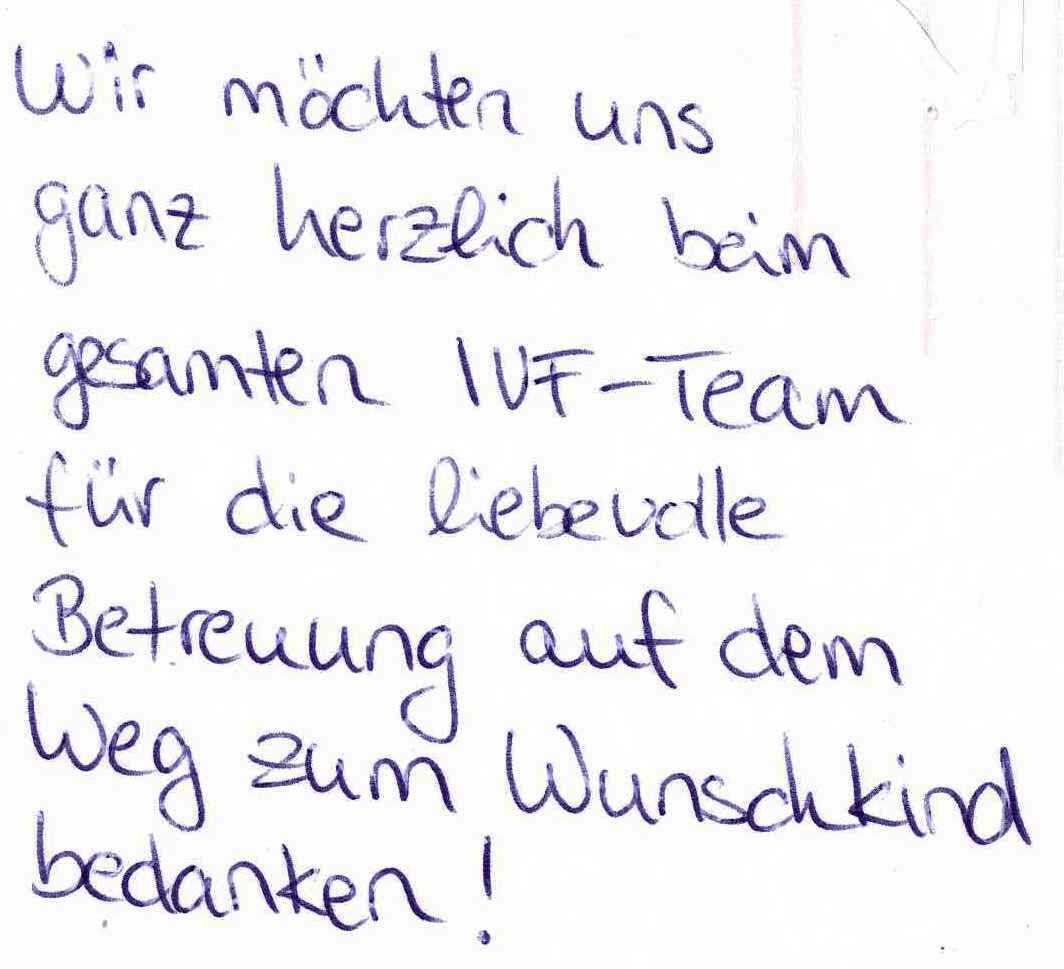 Wir möchten uns
ganz herzlich beim
gesamten IVF-Team
für die liebevolle
Betreuung auf dem
Weg zum Wunschkind
bedanken!